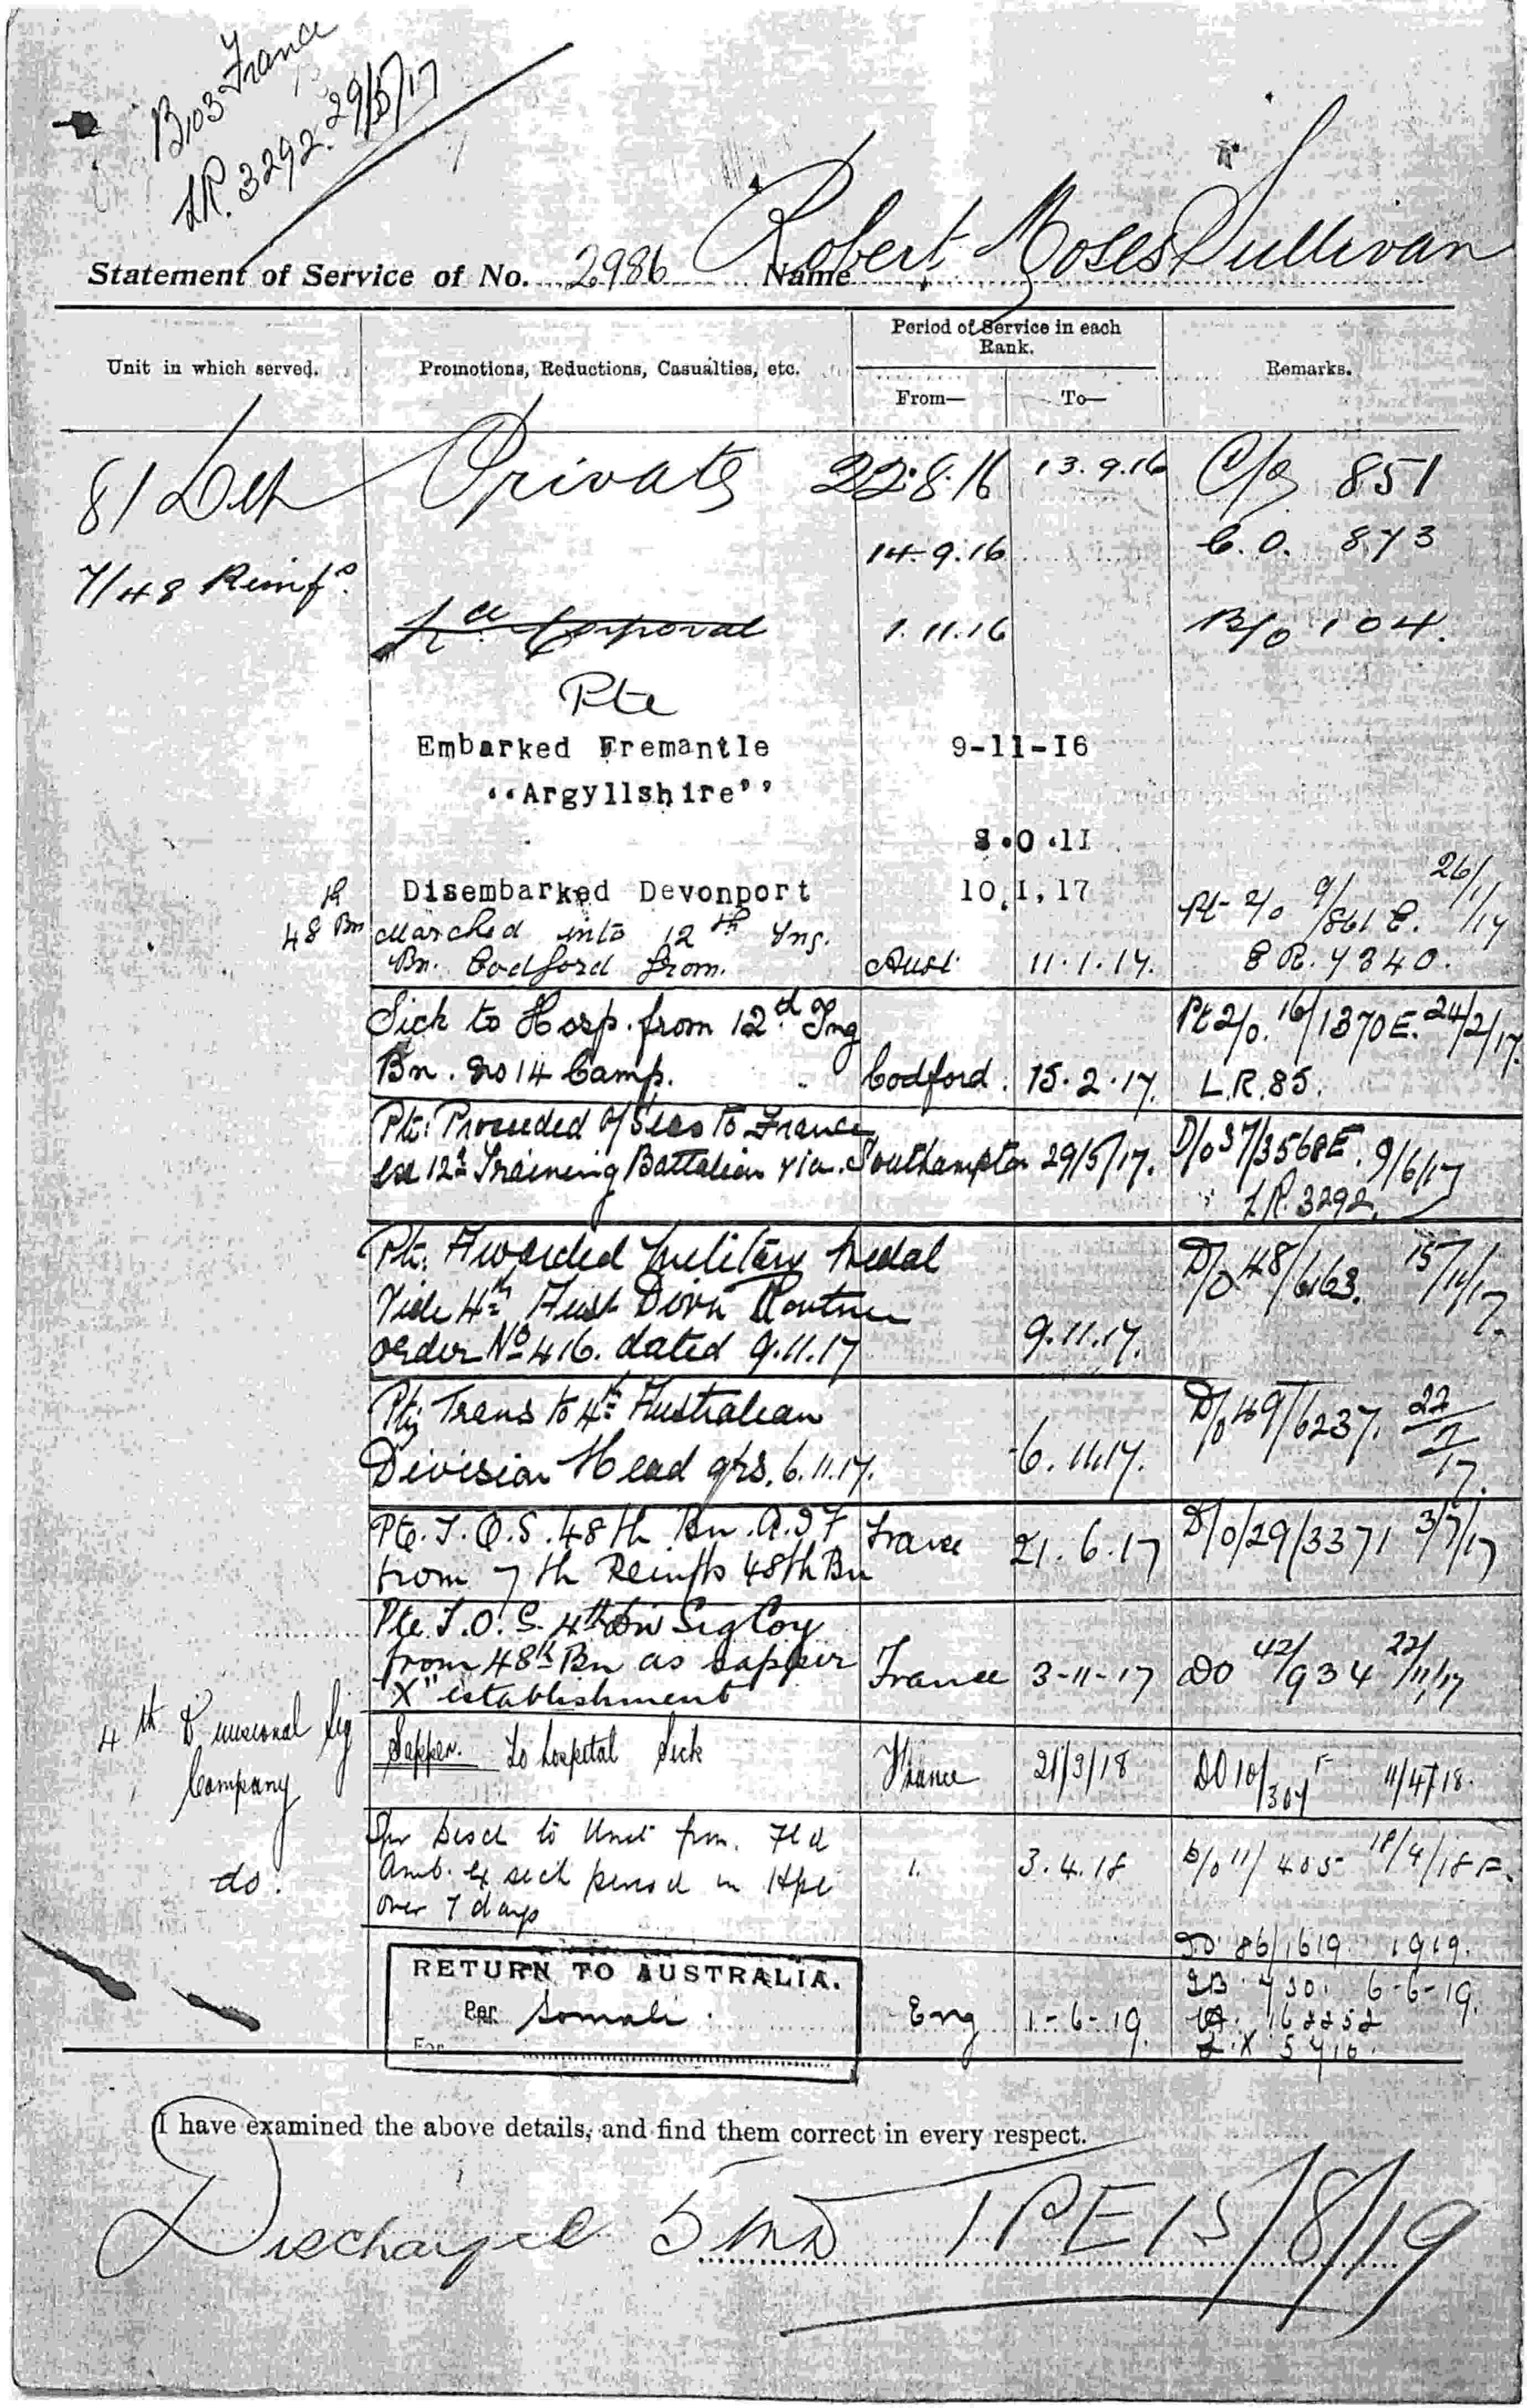 B103 France
LR. 3292. 29/5/17
Statement of Service of No. 2986 Name Robert Moses Sullivan
Unit in which served. Promotions, Reductions, Casualties, etc. Period of Service in each Rank. Remarks.
From— To—
81 Dep Private 22.8.16 13.9.16 C/o 851
14.9.16 C.O. 873
7/48 Reinfs.
Lce Corporal 1.11.16 B/o 104.
Pte
Embarked Fremantle 9-11-I6
"Argyllshire"
S.O.II
Disembarked Devonport 10.1.17
48th Bn Marched into 12th Tng. Pt 2/o 9/861 E. 26/1/17
Bn. Codford from. Aust. 11.1.17. SR. 7340.
Sick to Hosp. from 12th Tng Pt 2/o. 16/1370E. 24/2/17.
Bn. No 14 Camp. Codford. 15.2.17. L.R.85.
Pte: Proceeded o/Seas to France D/o 37/3568E. 9/6/17
12th Training Battalion via. Southampton 29/5/17.
LR. 3292.
Pte. Awarded Military Medal D/o 48/6163. 15/11/17.
Vide 4th Aust Divn Routine
order No 416. dated 9.11.17 9.11.17.
Pte Trans to 4th Australian D/o 49/6237.
Division Head qrs. 6.11.17. 6.11.17.
Pte. T.O.S. 48th Bn. A.I.F France 21.6.17 D/o/29/3371 3/7/17
from 7th Reinfts 48th Bn
Pte T.O.S. 4th Div Sig Coy
from 48th Bn as sapper France 3-11-17 DO 42/934 22/11/17
"X" establishment
4th Divisional Sig
Company
Sapper. To hospital Sick France 21/3/18 DO 10/307 F 11/4/18.
Spr Disch to Unit from Fld
do. Amb. ex sick period in Hpl 3.4.18 D/o 11/405 18/4/18 F.
over 7 days
D.O. 86/1619. 1919.
RETURN TO AUSTRALIA. 730. 6-6-19.
Per Somali. Eng 1-6-19. 162252
For X 5710.
I have examined the above details, and find them correct in every respect.
Discharged 5 MD TPE 15/8/19